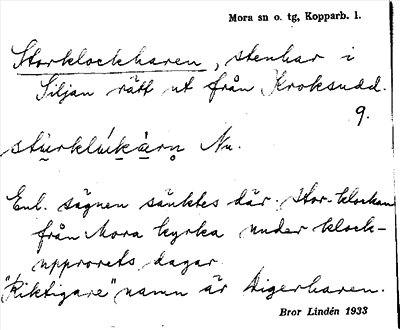 Mora sn o. tg, Kopparb. l.
Storklockharen, stenhar i
Siljan rätt ut från Kroksudd.
9.
stu̱rklú̱kä̱rn̥ Nu.
Enl. sägnen sänktes där Stor-klockan
från Mora kyrka under klock-
upprorets dagar.
"Riktigare" namn är Digerharen.
Bror Lindén 1933